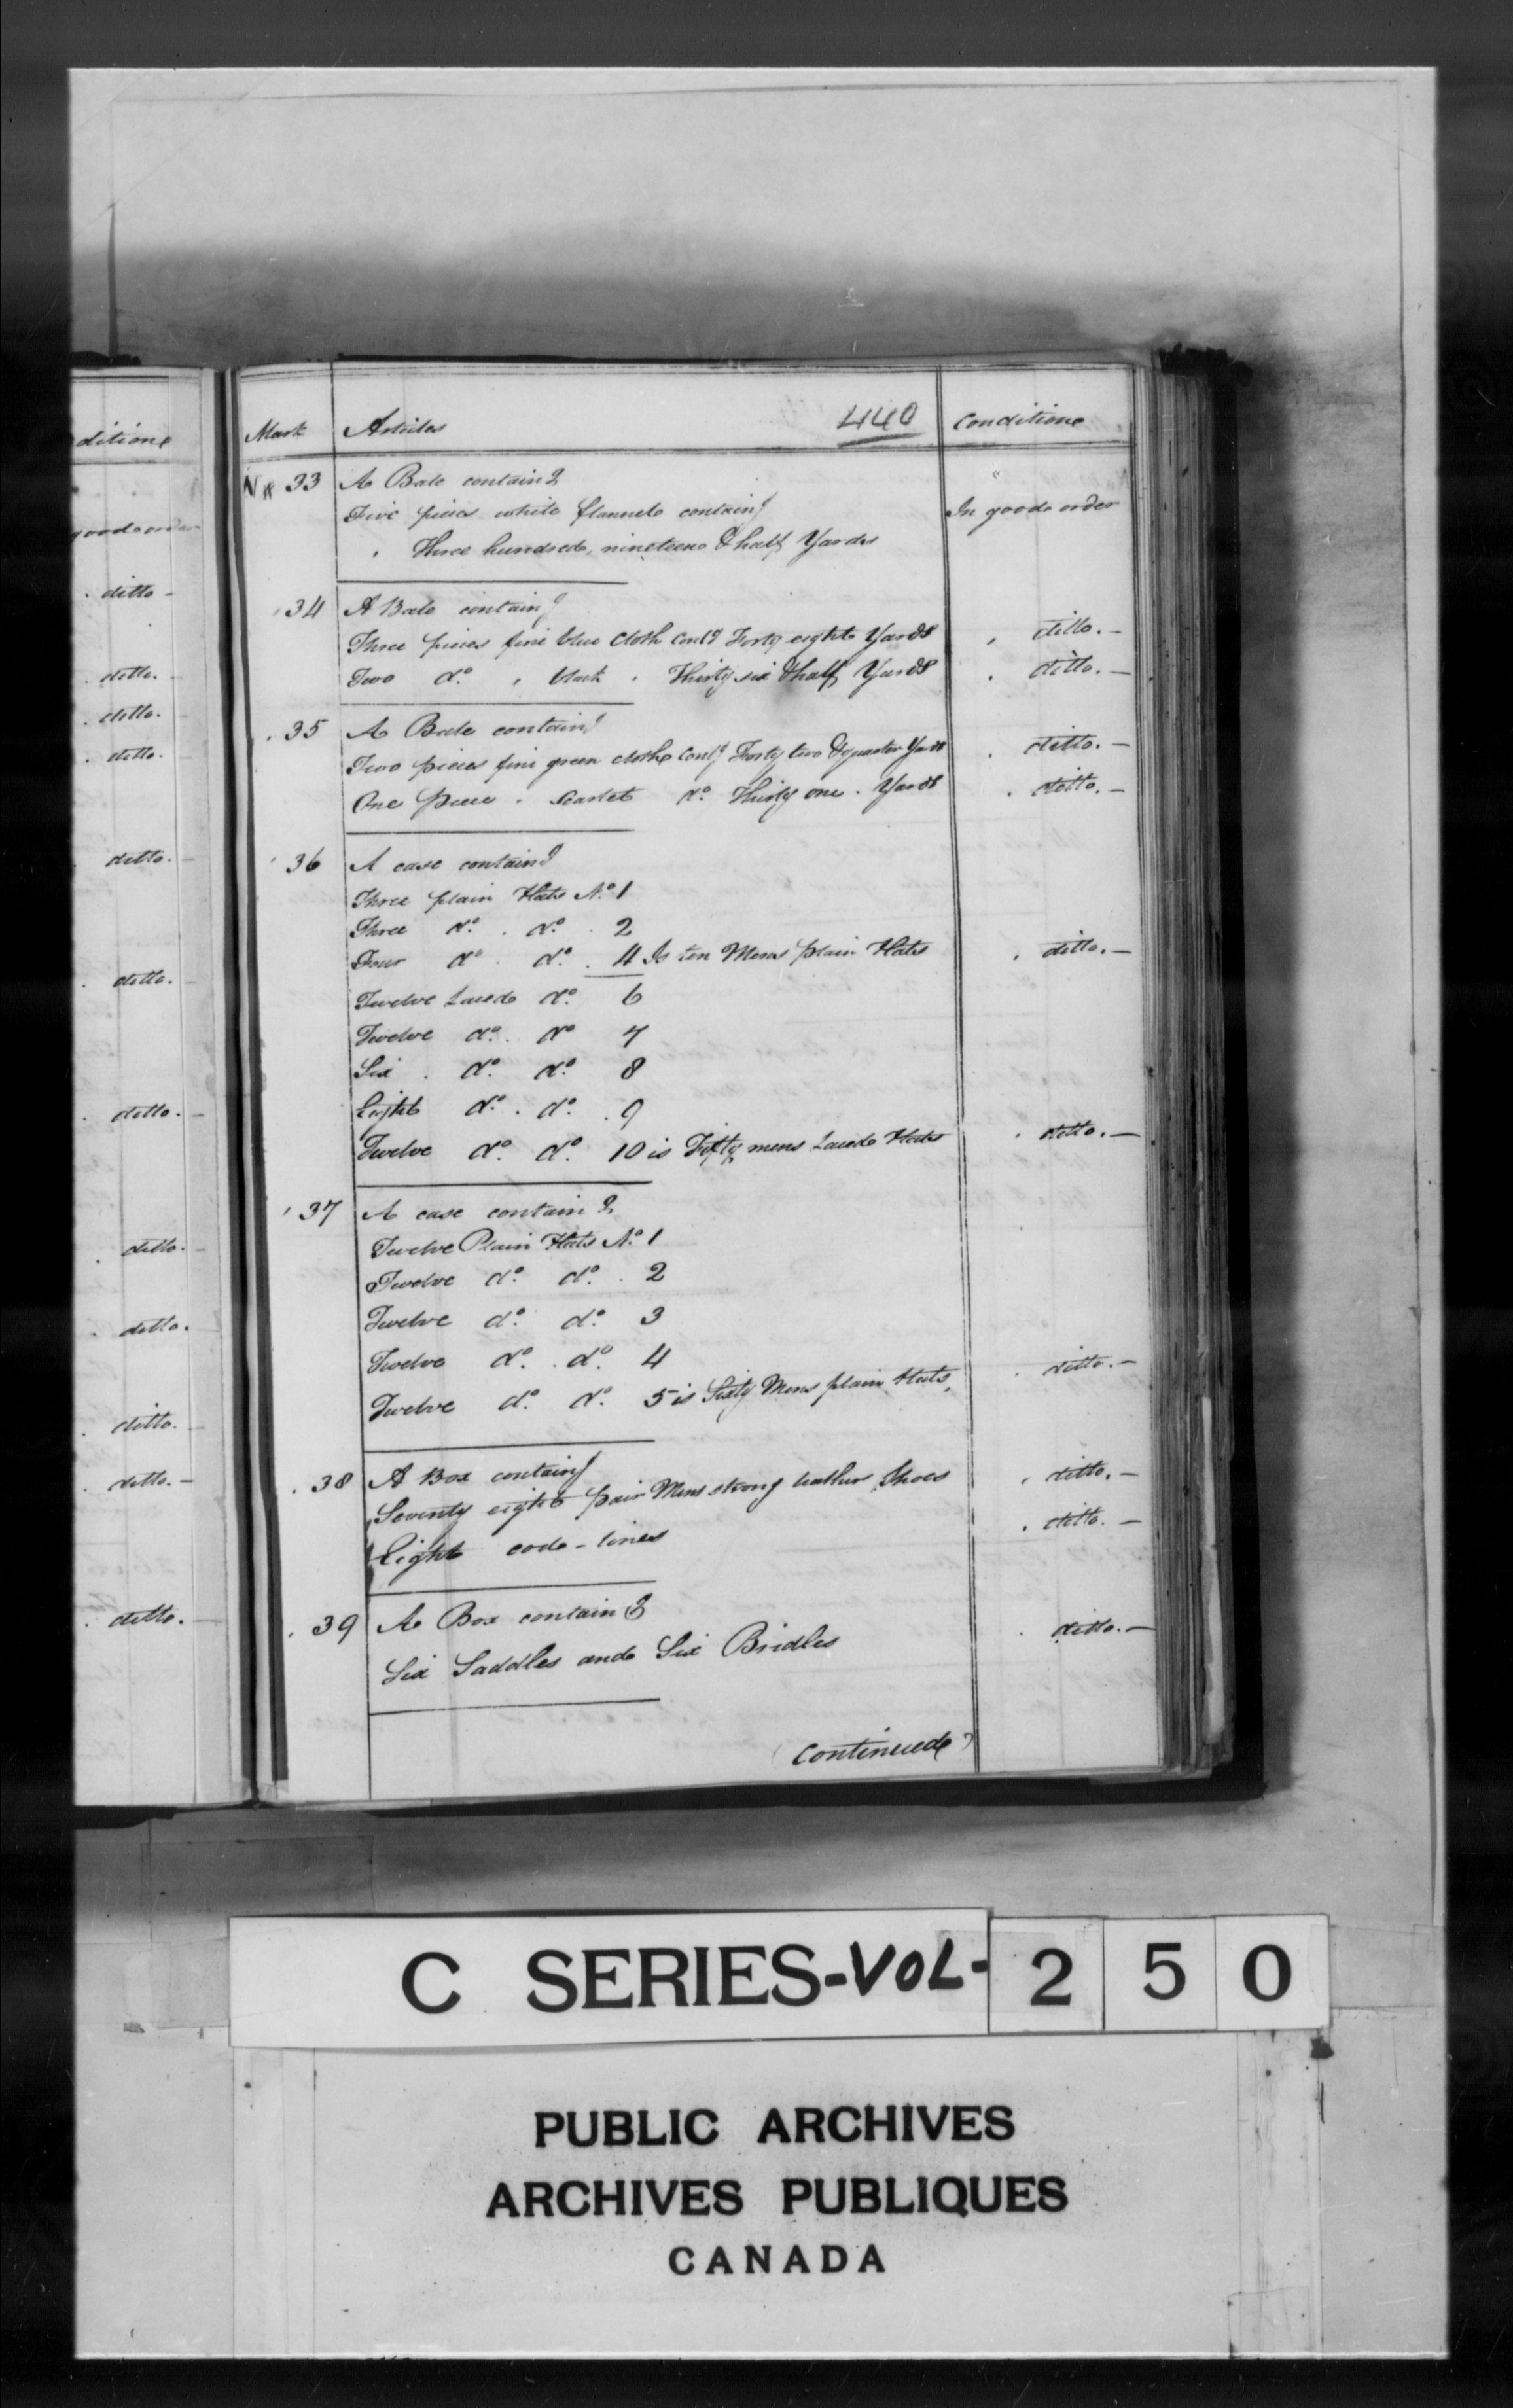 ditione
good order
ditto -
ditto.
ditto.
ditto.
ditto. -
ditto. -
ditto. -
ditto. -
ditto. -
ditto. -
ditto. -
ditto. -
Mark Articles 440 Condition
No 33 A Bale containg
Five pieces white flannel containg In good order
Three hundred, nineteen & half Yards
34 A Bale containg
Three pieces fine blue Cloth contg Forty eight Yards ditto. -
Two do. black Thirty six & half Yards ditto. -
35 A Bale containg
Two pieces fine green cloth contg Forty two & quarter Yards ditto. -
One piece scarlet do. Thirty one Yards ditto. -
36 A case containg
Three plain Hats No. 1
Three do. do. 2
Four do. do. 4 Is ten Mens plain Hats ditto. -
Twelve Laced do. 6
Twelve do. do 7
Six do. do. 8
Eight do. do. 9
Twelve do. do. 10 is Fifty mens Laced Hats ditto. -
37 A case containg
Twelve Plain Hats No. 1
Twelve do. do. 2
Twelve do. do. 3
Twelve do. do. 4
Twelve do. do. 5 is Sixty Mens plain Hats, ditto. -
38 A Box containg
Seventy eight pair Mens strong leather Shoes ditto. -
Eight cod-lines ditto. -
39 A Box containg
Six Saddles and Six Bridles ditto. -
(Continued)
C SERIES-VOL-250
PUBLIC ARCHIVES
ARCHIVES PUBLIQUES
CANADA